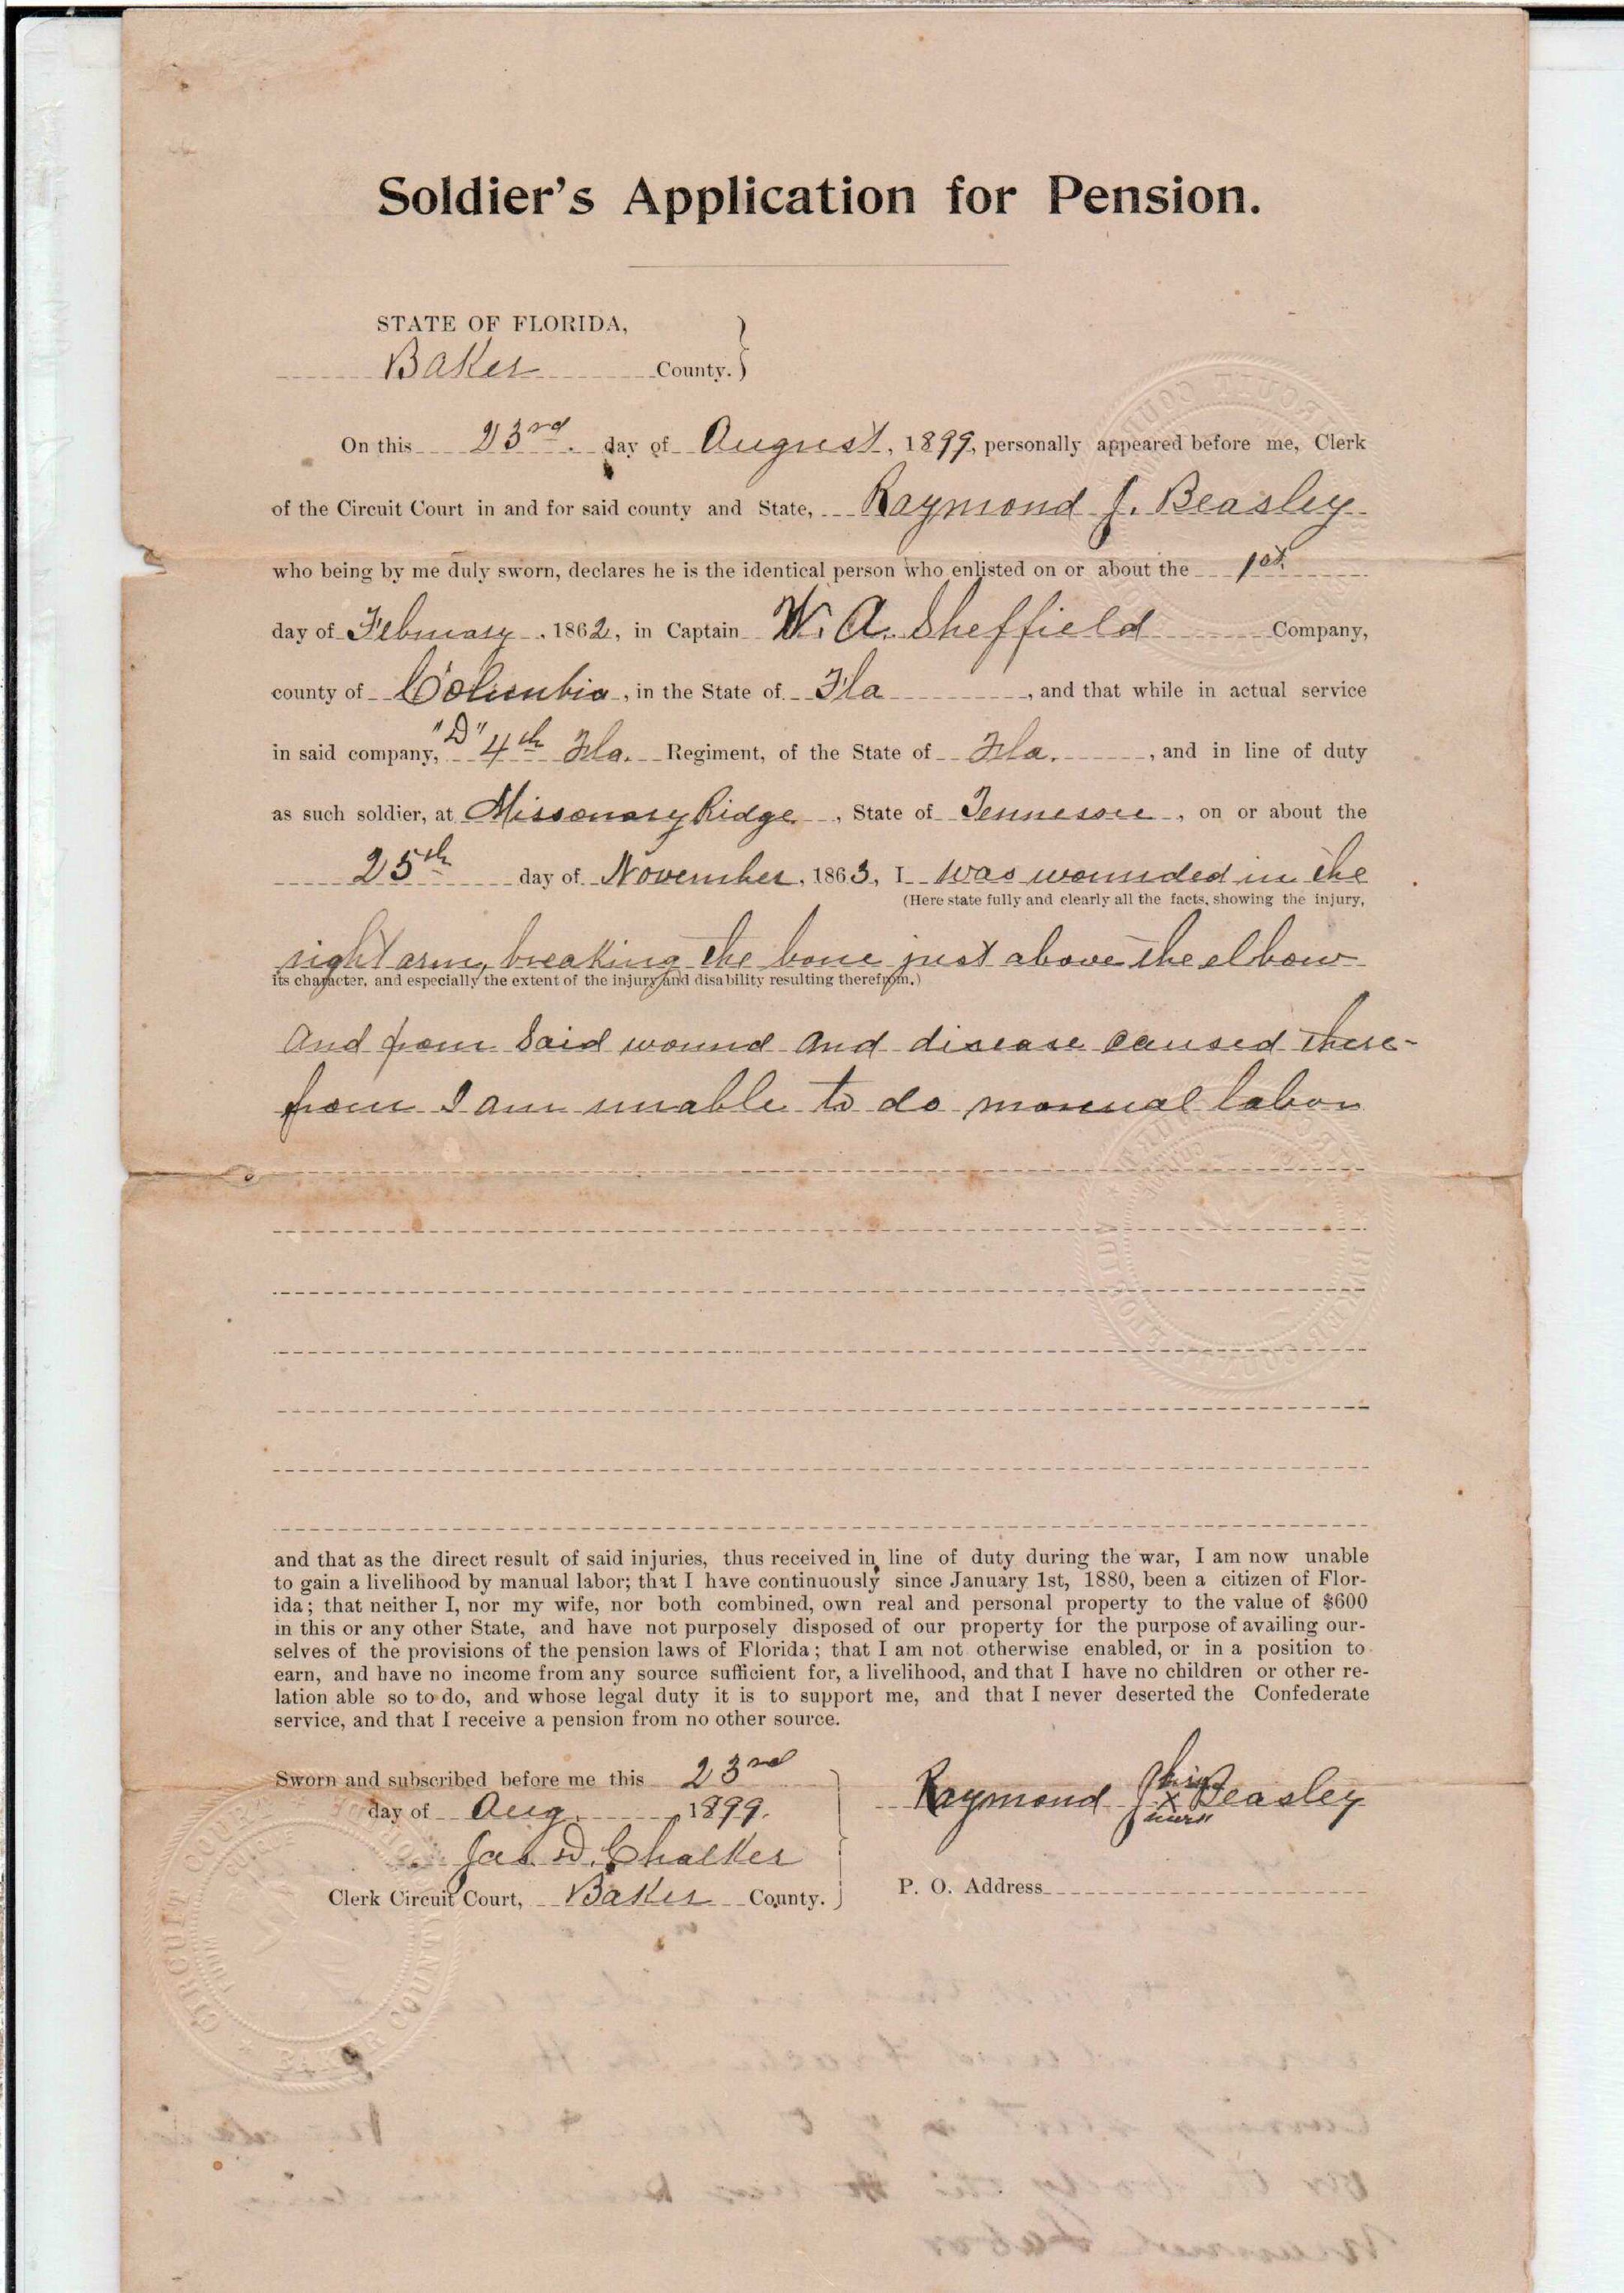 Soldier's Application for Pension.
STATE OF FLORIDA,
Baker County. }
On this 23rd. day of August, 1899, personally appeared before me, Clerk
of the Circuit Court in and for said county and State, Raymond J. Beasley
who being by me duly sworn, declares he is the identical person who enlisted on or about the 1st.
day of February, 1862, in Captain W. A. Sheffield Company,
county of Columbia, in the State of Fla, and that while in actual service
in said company, "D" 4th Fla. Regiment, of the State of Fla., and in line of duty
as such soldier, at Missonary Ridge, State of Tennessee, on or about the
25th day of November, 1863, I was wounded in the
(Here state fully and clearly all the facts, showing the injury,
right arm, breaking the bone just above the elbow
its character, and especially the extent of the injury and disability resulting therefrom.)
and from said wound and disease caused there-
from I am unable to do manual labor
and that as the direct result of said injuries, thus received in line of duty during the war, I am now unable
to gain a livelihood by manual labor; that I have continuously since January 1st, 1880, been a citizen of Flor-
ida; that neither I, nor my wife, nor both combined, own real and personal property to the value of $600
in this or any other State, and have not purposely disposed of our property for the purpose of availing our-
selves of the provisions of the pension laws of Florida; that I am not otherwise enabled, or in a position to
earn, and have no income from any source sufficient for, a livelihood, and that I have no children or other re-
lation able so to do, and whose legal duty it is to support me, and that I never deserted the Confederate
service, and that I receive a pension from no other source.
Sworn and subscribed before me this 23rd
day of Aug. 1899.
Jas. D. Chalker
Clerk Circuit Court, Baker County.
his
Raymond J. X Beasley
mark
P. O. Address
CIRCUIT COURT
BAKER COUNTY